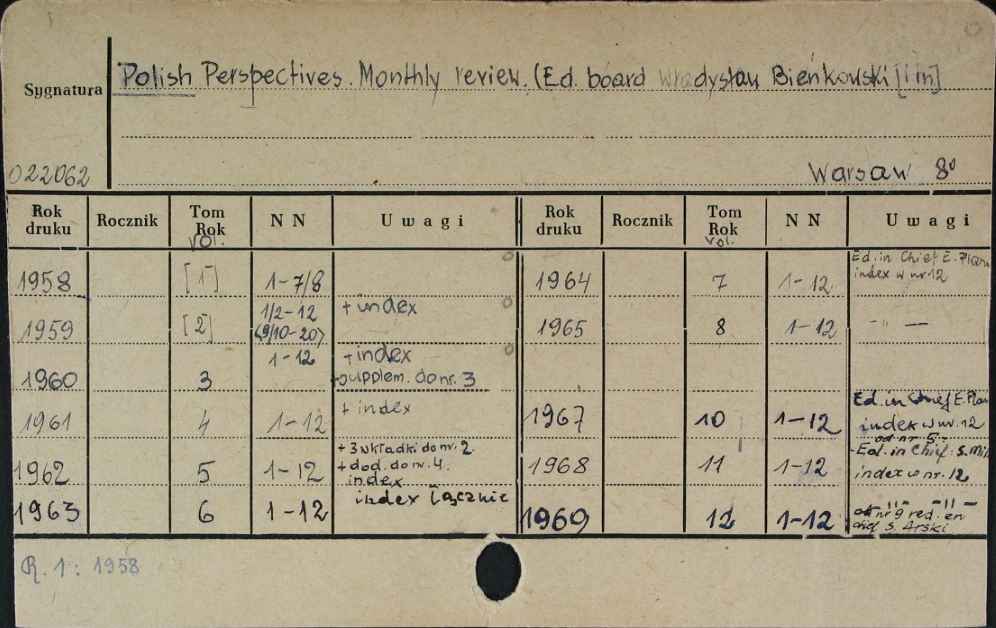 Sygnatura
Polish Perspectives. Monthly review. (Ed. board Władysław Bieńkowski [i in]
022062
Warsaw 8°
Rok druku Rocznik Tom Rok vol. N N Uwagi Rok druku Rocznik Tom Rok vol. N N Uwagi
1958 [1] 1-7/8
1959 [2] 1/2-12 (9/10-20) + index
1960 3 1-12 + index
+ supplem. do nr. 3
1961 4 1-12 + index
1962 5 1-12 + 3 wkładki do nr. 2.
+ dod. do nr. 4.
index
1963 6 1-12 index łącznie
1964 7 1-12 Ed. in Chief E.
index w nr 12
1965 8 1-12 -"- —
1967 10 1-12 Ed. in Chief E.
index w nr. 12
1968 11 1-12 od nr 5.-
-Ed. in Chief: S.
index w nr. 12
1969 12 1-12 -"- -"-
od nr 9 red. en
chef S. Arski.
R. 1: 1958